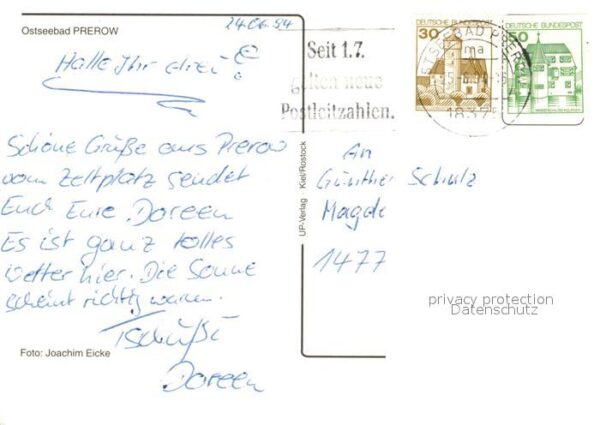 Ostseebad PREROW
24.06.94
Hallo Ihr drei!
Schöne Grüße aus Prerow
vom Zeltplatz sendet
Euch Eure Doreen
Es ist ganz tolles
Wetter hier. Die Sonne
scheint richtig warm.
Tschüßi
Doreen
Foto: Joachim Eicke
UP-Verlag Kiel/Rostock
Seit 1.7.
gelten neue
Postleitzahlen.
DEUTSCHE BUNDESPOST
30
DEUTSCHE BUNDESPOST
50
OSTSEEBAD PREROW
ma
An
Günther Schulz
Magde
1477
privacy protection
Datenschutz